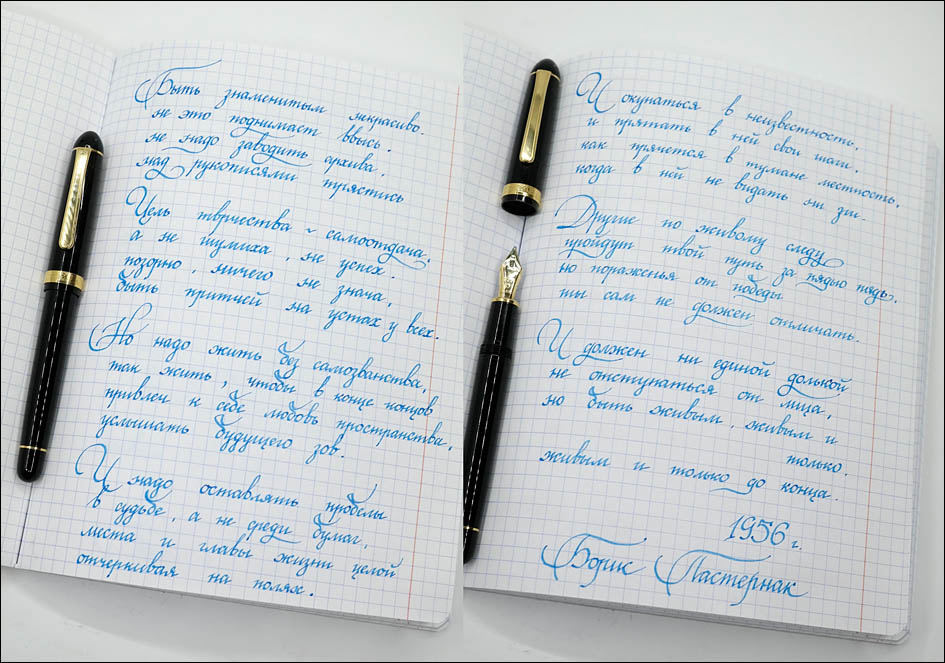 Быть знаменитым некрасиво.
не это поднимает ввысь.
не надо заводить архива,
над рукописями трястись
Цель творчества - самоотдача,
а не шумиха, не успех.
позорно, ничего не знача,
быть притчей на устах у всех.
Но надо жить без самозванства,
так жить, чтобы в конце концов
привлеч к себе любовь пространства,
услышать будущего зов.
И надо оставлять пробелы
в судьбе, а не среди бумаг,
места и главы жизни целой
отчеркивая на полях.
И окунаться в неизвестность,
и прятать в ней свои шаги,
как прячется в тумане местность,
когда в ней не видать ни зги.
Другие по живому следу
пройдут твой путь за пядью пядь,
но пораженья от победы
ты сам не должен отличать.
И должен ни единой долькой
не отступаться от лица,
но быть живым, живым и
только.
живым и только до конца.
1956 г.
Борис Пастернак